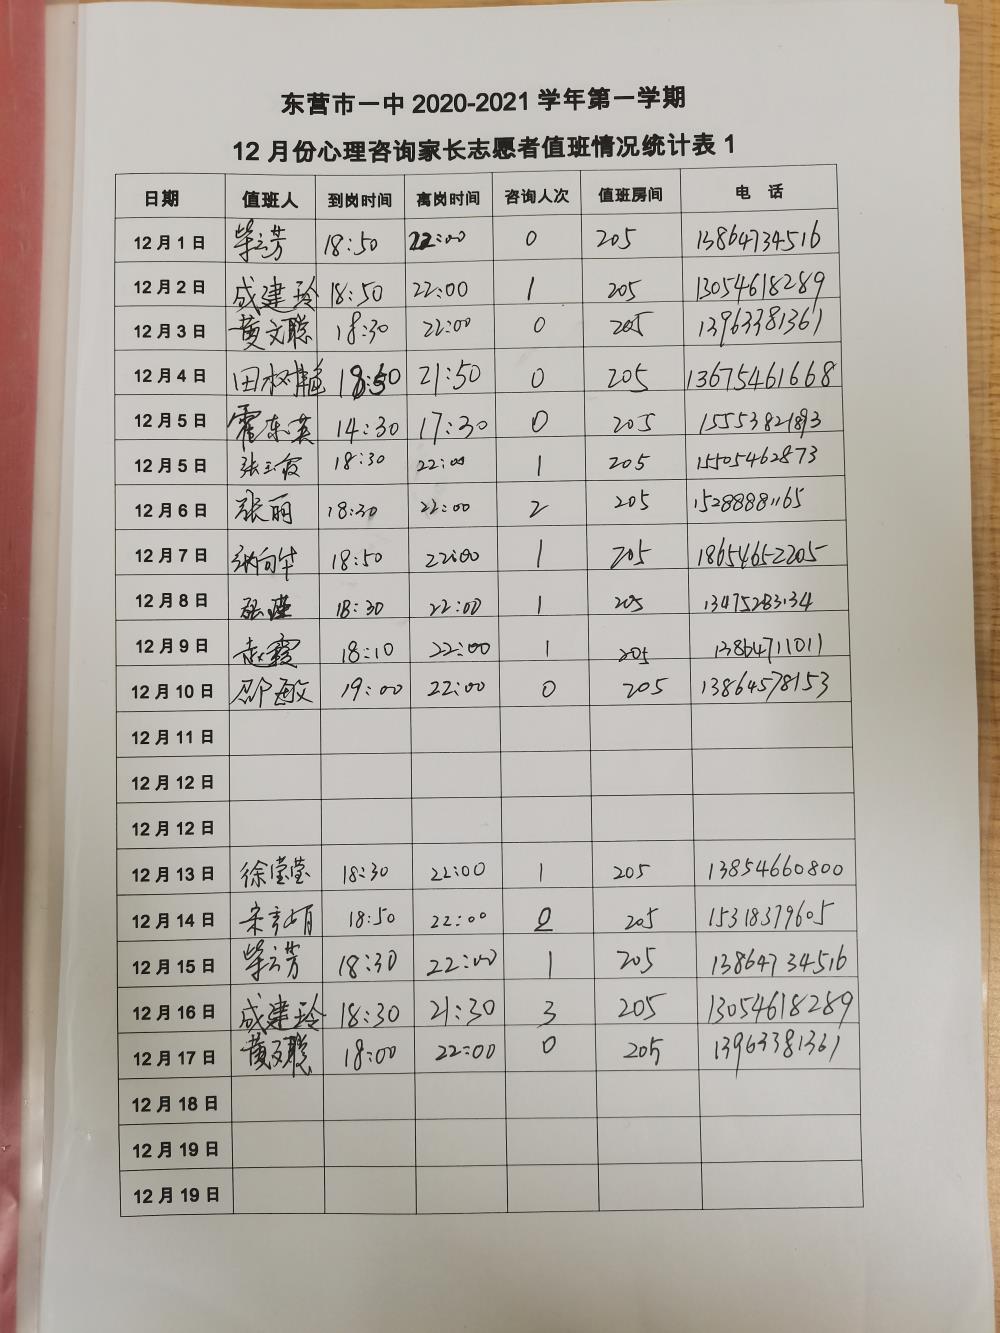 东营市一中2020-2021学年第一学期
12月份心理咨询家长志愿者值班情况统计表1
日期 值班人 到岗时间 离岗时间 咨询人次 值班房间 电 话
12月1日 柴云芳 18:50 22:00 0 205 13864734516
12月2日 成建玲 18:50 22:00 1 205 13054618289
12月3日 黄文聪 18:30 22:00 0 205 13963381361
12月4日 田树 21:50 0 205 13675461668
12月5日 霍东英 14:30 17:30 0 205 15553821893
12月5日 张玉霞 18:30 22:00 1 205 15505462873
12月6日 张丽 18:30 22:00 2 205 15288881165
12月7日 18:50 22:00 1 205 18654652205
12月8日 张 18:30 22:00 1 205 13475283134
12月9日 赵霞 18:10 22:00 1 205 13864711011
12月10日 邵 19:00 22:00 0 205 13864578153
12月11日
12月12日
12月12日
12月13日 徐莹莹 18:30 22:00 1 205 13854660800
12月14日 宋 18:50 22:00 0 205 15318379605
12月15日 柴云芳 18:30 22:00 1 205 13864734516
12月16日 成建玲 18:30 21:30 3 205 13054618289
12月17日 黄文聪 18:00 22:00 0 205 13963381361
12月18日
12月19日
12月19日